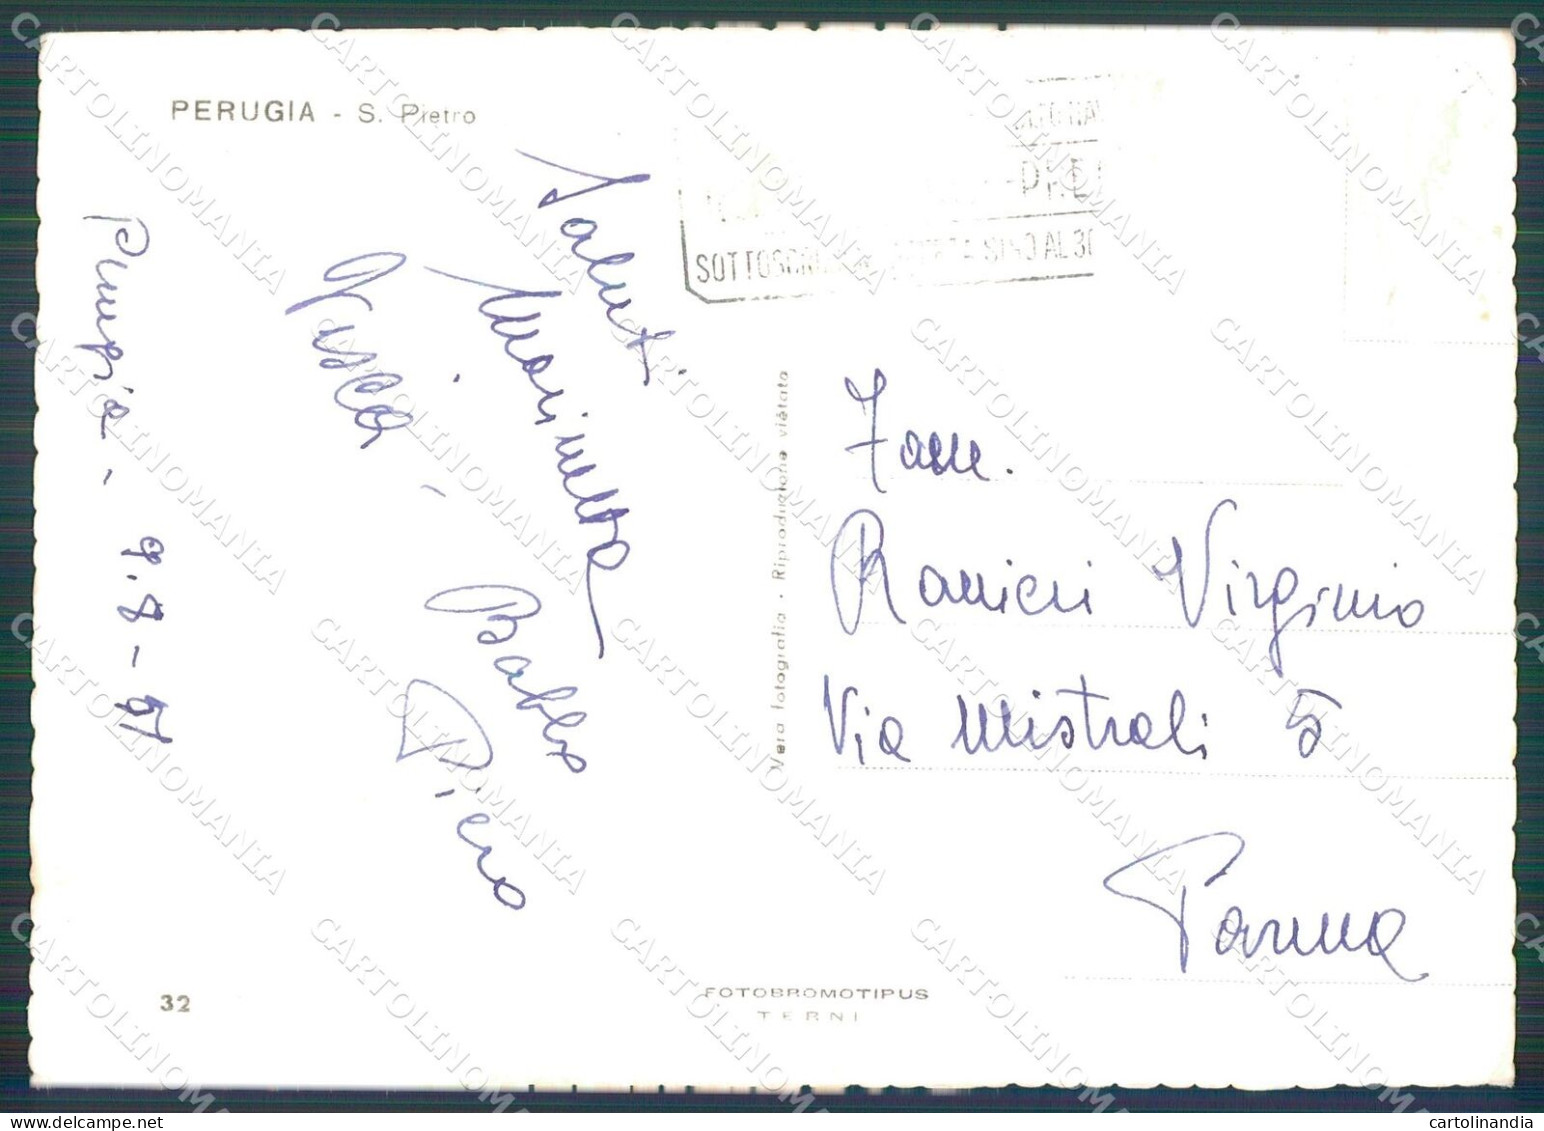 PERUGIA - S. Pietro
Saluti
Marinetta
- Babbo
Piero
Perugia - 9.8-57
SOTTOSCRI
AL 30
Vera fotografia - Riproduzione vietata
Fam.
Ranieri Virginio
Via Mistrali 5
Parma
32
FOTOBROMOTIPUS
TERNI
CARTOLINOMANIA
cartolinandia